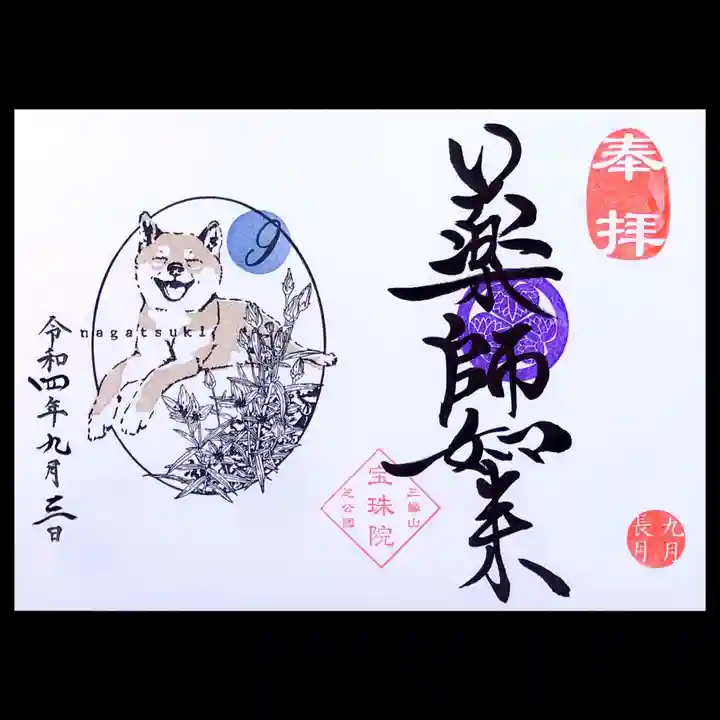 奉拝
い薬師如来
九月
長月
三縁山
宝珠院
芝公園
9
nagatsuki
令和四年九月三日